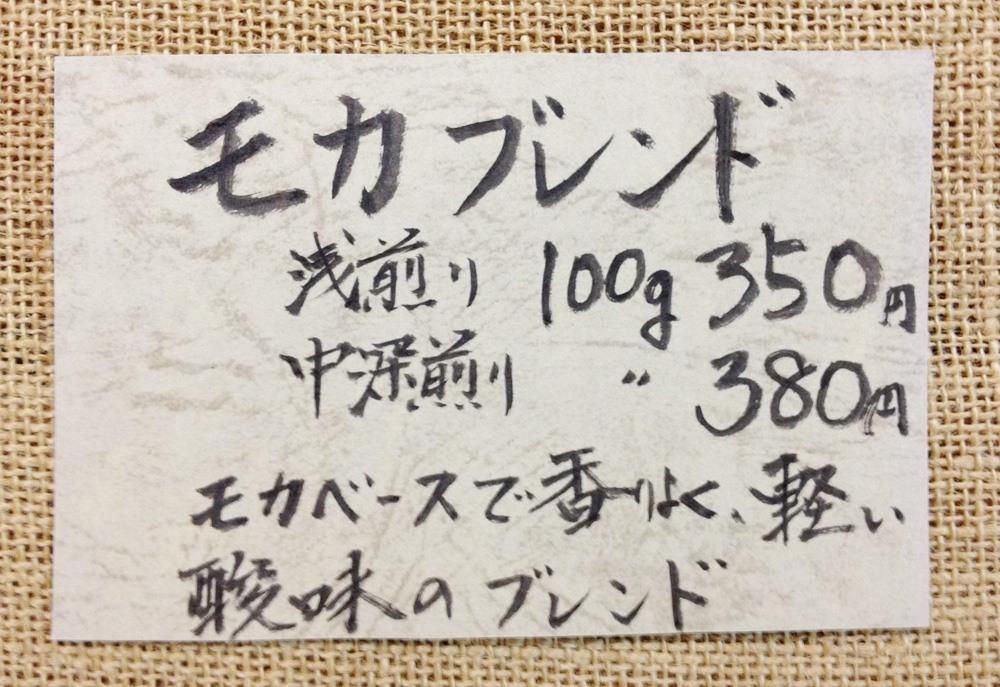 モカブレンド
浅煎り 100g 350円
中深煎り 〃 380円
モカベースで香りよく、軽い
酸味のブレンド